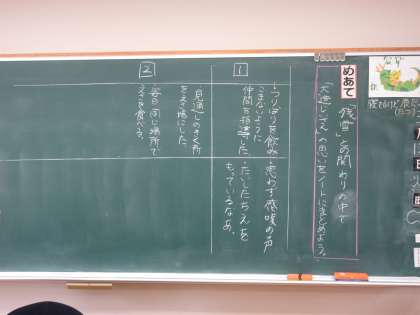 めあて
「残雪」との関わりの中で
「大造じいさん」の思いをノートにまとめよう。
1
・つりばりを飲み
こまないように
仲間を指導した。
・思わず感嘆の声
・たいしたちえを
もっているなあ。
2
・見通しのきく所
をえ場にした。
・毎日同じ場所で
えさを食べる。